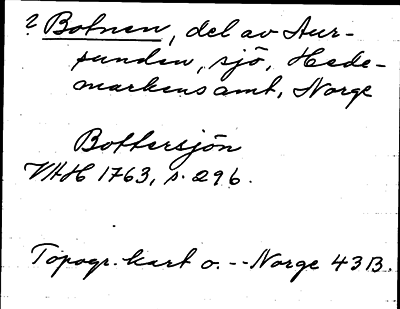 ? Botnen, del av Aur-
sunden, sjö, Hede-
markens amt, Norge
Bottersjön
VAH 1763, s. 296.
Topogr. kart o. -- Norge 43B.